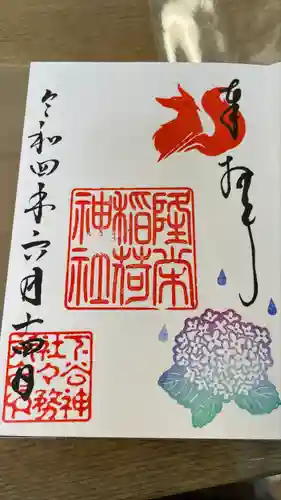 奉拝
隆栄
稲荷
神社
令和四年六月十四日
下谷神
社々務